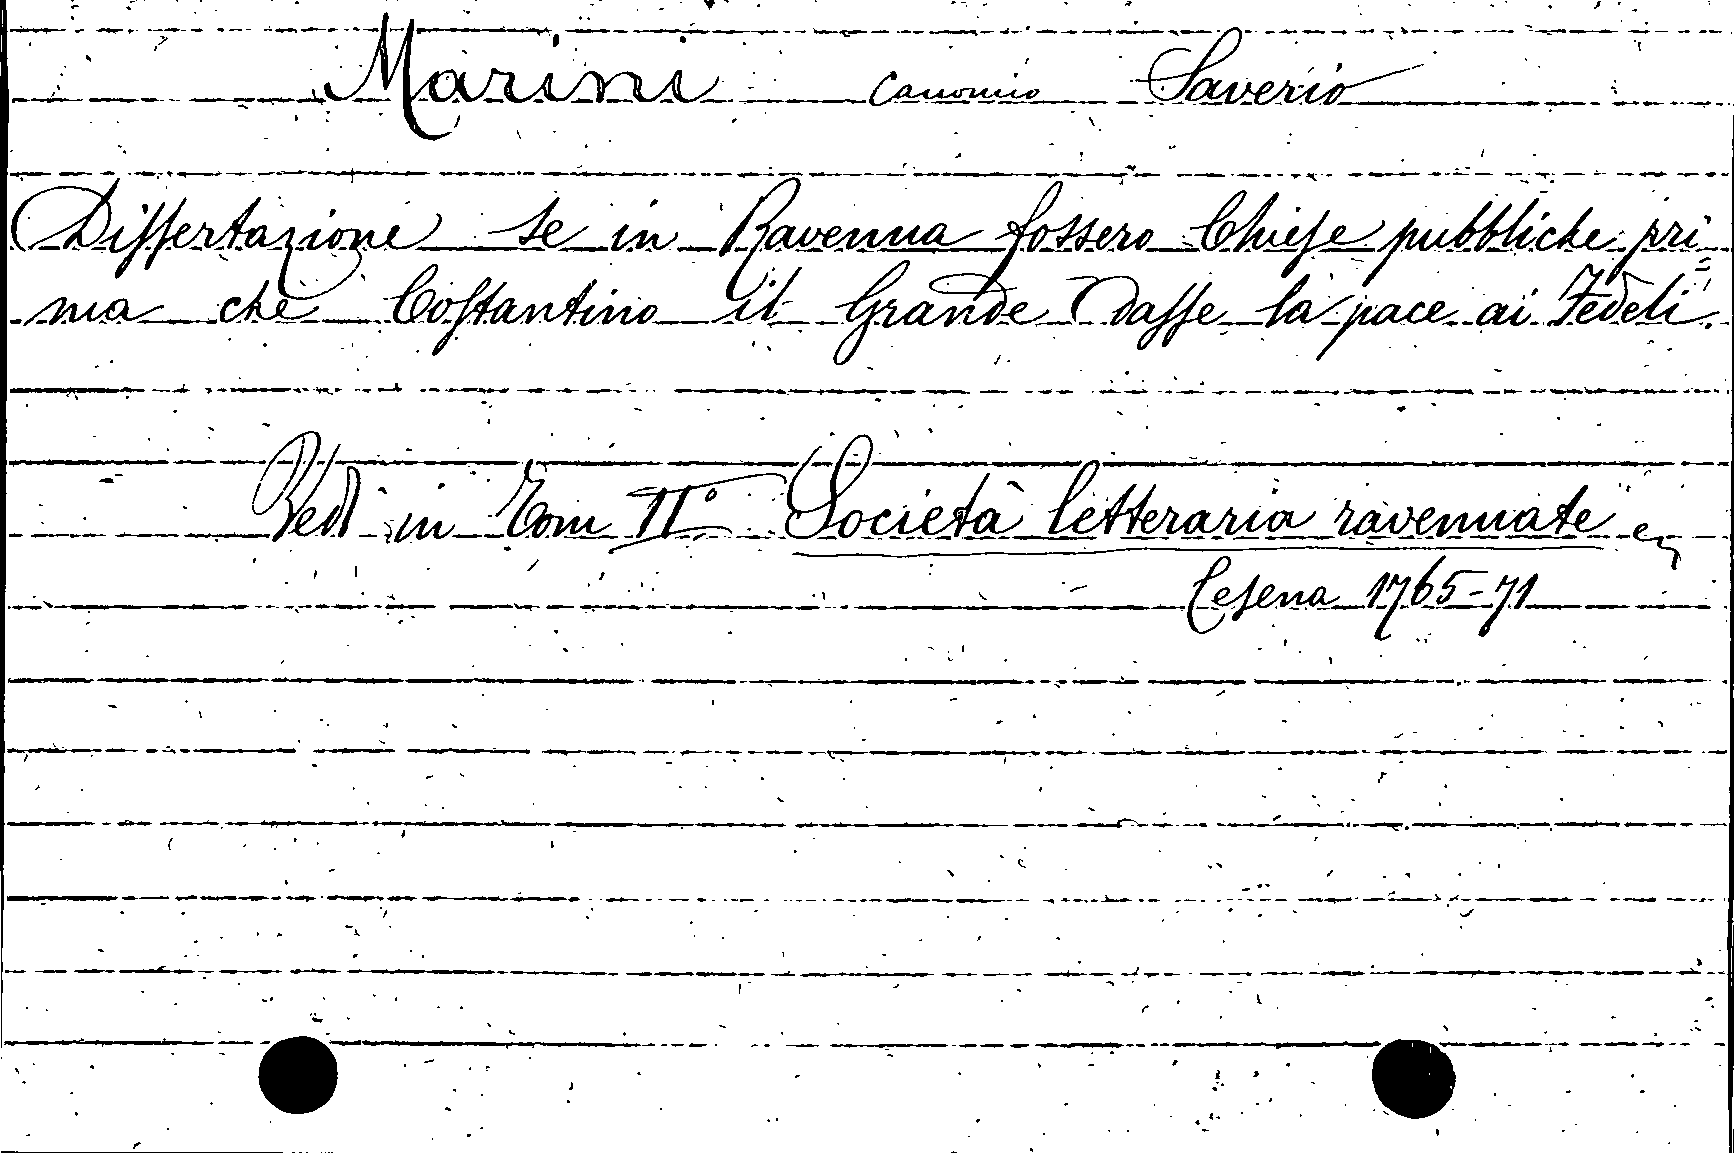 Marini canonico Saverio
Dissertazione se in Ravenna fossero Chiese pubbliche pri=
ma che Costantino il Grande dasse la pace ai Fedeli.
Vedi in Tom II° Società letteraria ravennate
Cesena 1765-71